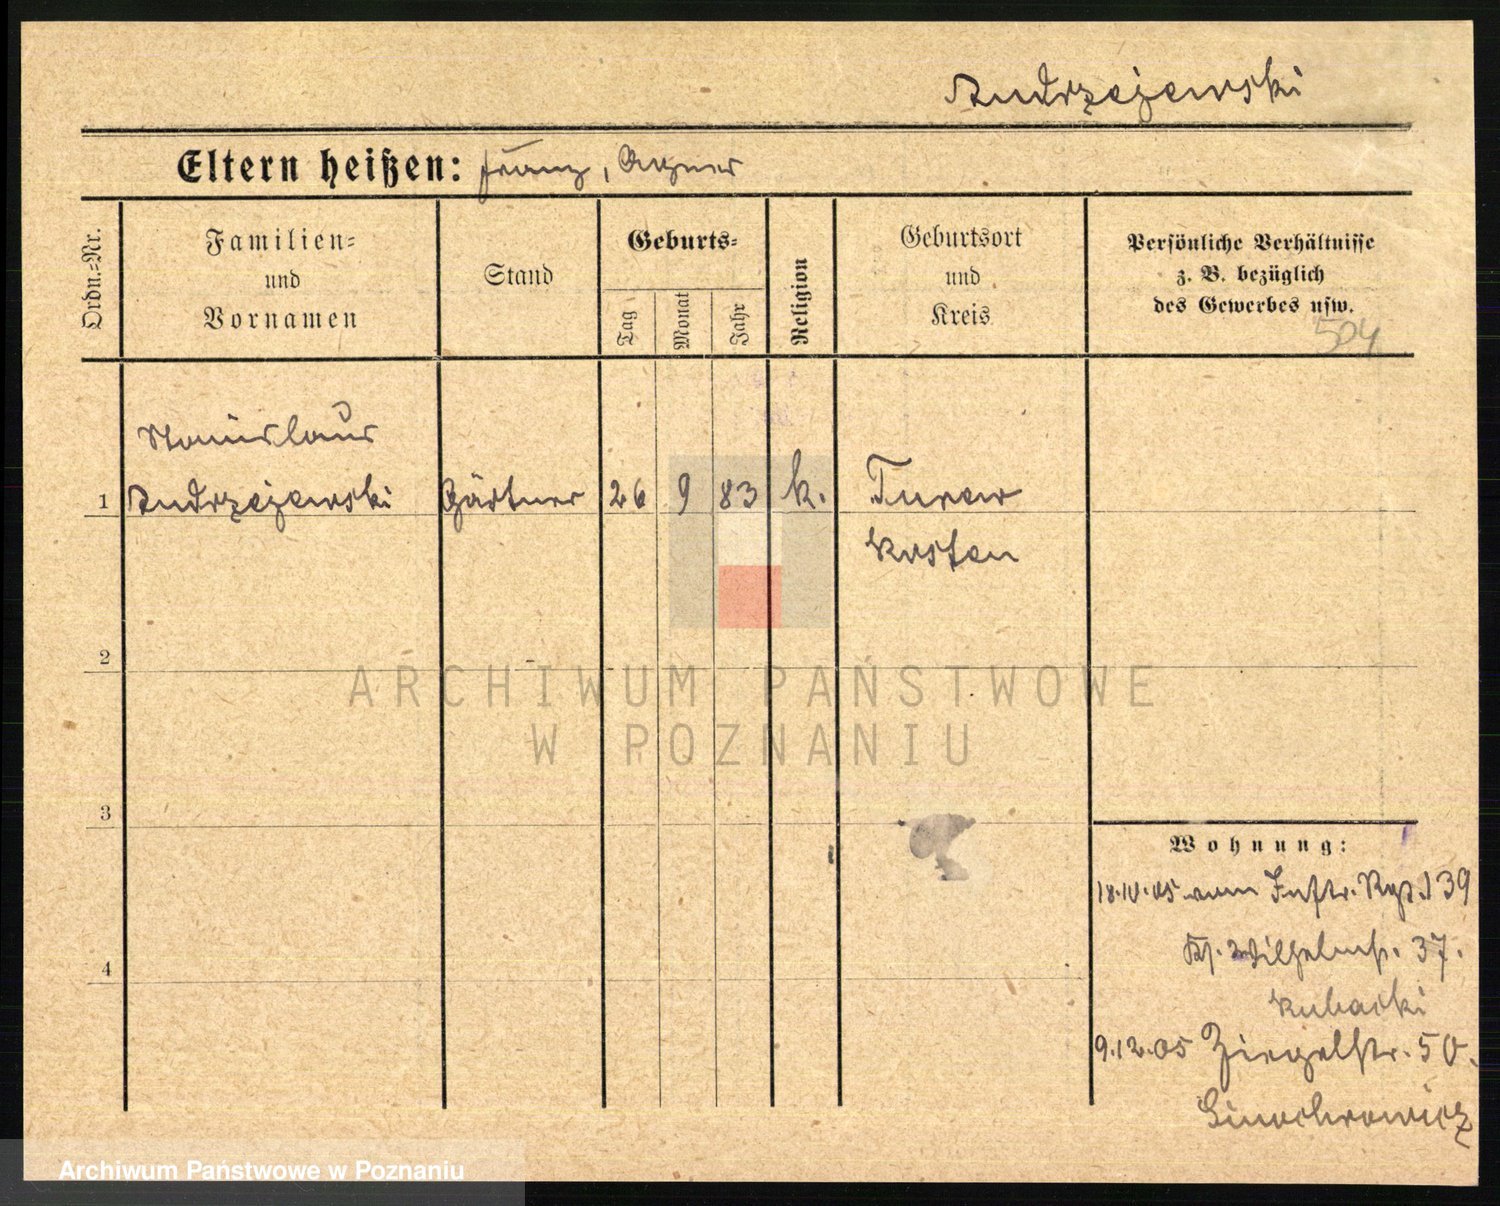 Andrzejewski
Eltern heißen: Franz, Agnes
Ordn.-Nr.
Familien-
und
Vornamen
Stand
Geburts-
Tag
Monat
Jahr
Religion
Geburtsort
und
Kreis
Persönliche Verhältnisse
z. B. bezüglich
des Gewerbes usw.
504
Stanislaus
1 Andrzejewski Gärtner 26 9 83 k. Turew
Kosten
2
ARCHIWUM PAŃSTWOWE
W POZNANIU
3
Wohnung:
vom Inftr. Rgt. 139
Wilhelmstr. 37.
Kubacki
4
9.12.05 Ziegelstr. 50.
Archiwum Państwowe w Poznaniu